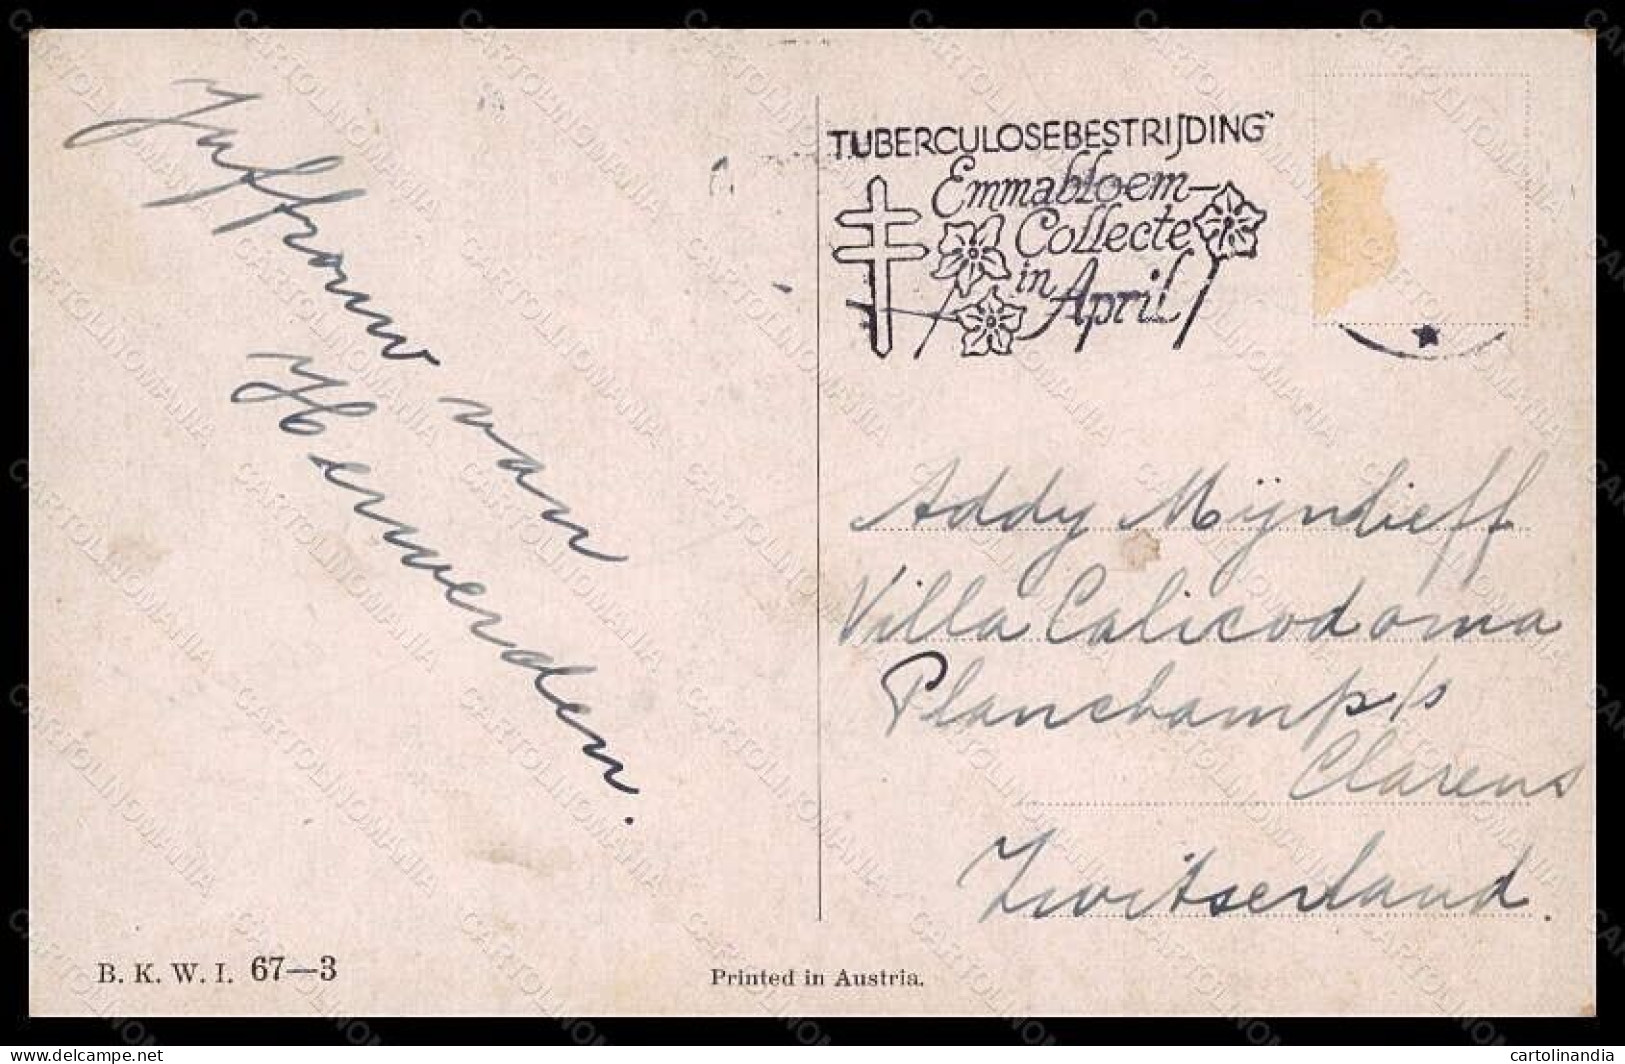 Juffrouw van
Herwerden.
TUBERCULOSEBESTRIJDING
Emmabloem-
Collecte
in
April
Addy Mijnlieff
Villa Calicodoma
Planchamp s/
Clarens
Zwitserland.
B. K. W. I. 67—3
Printed in Austria.
delcampe.net
cartolinandia
CARTOLINOMANIA